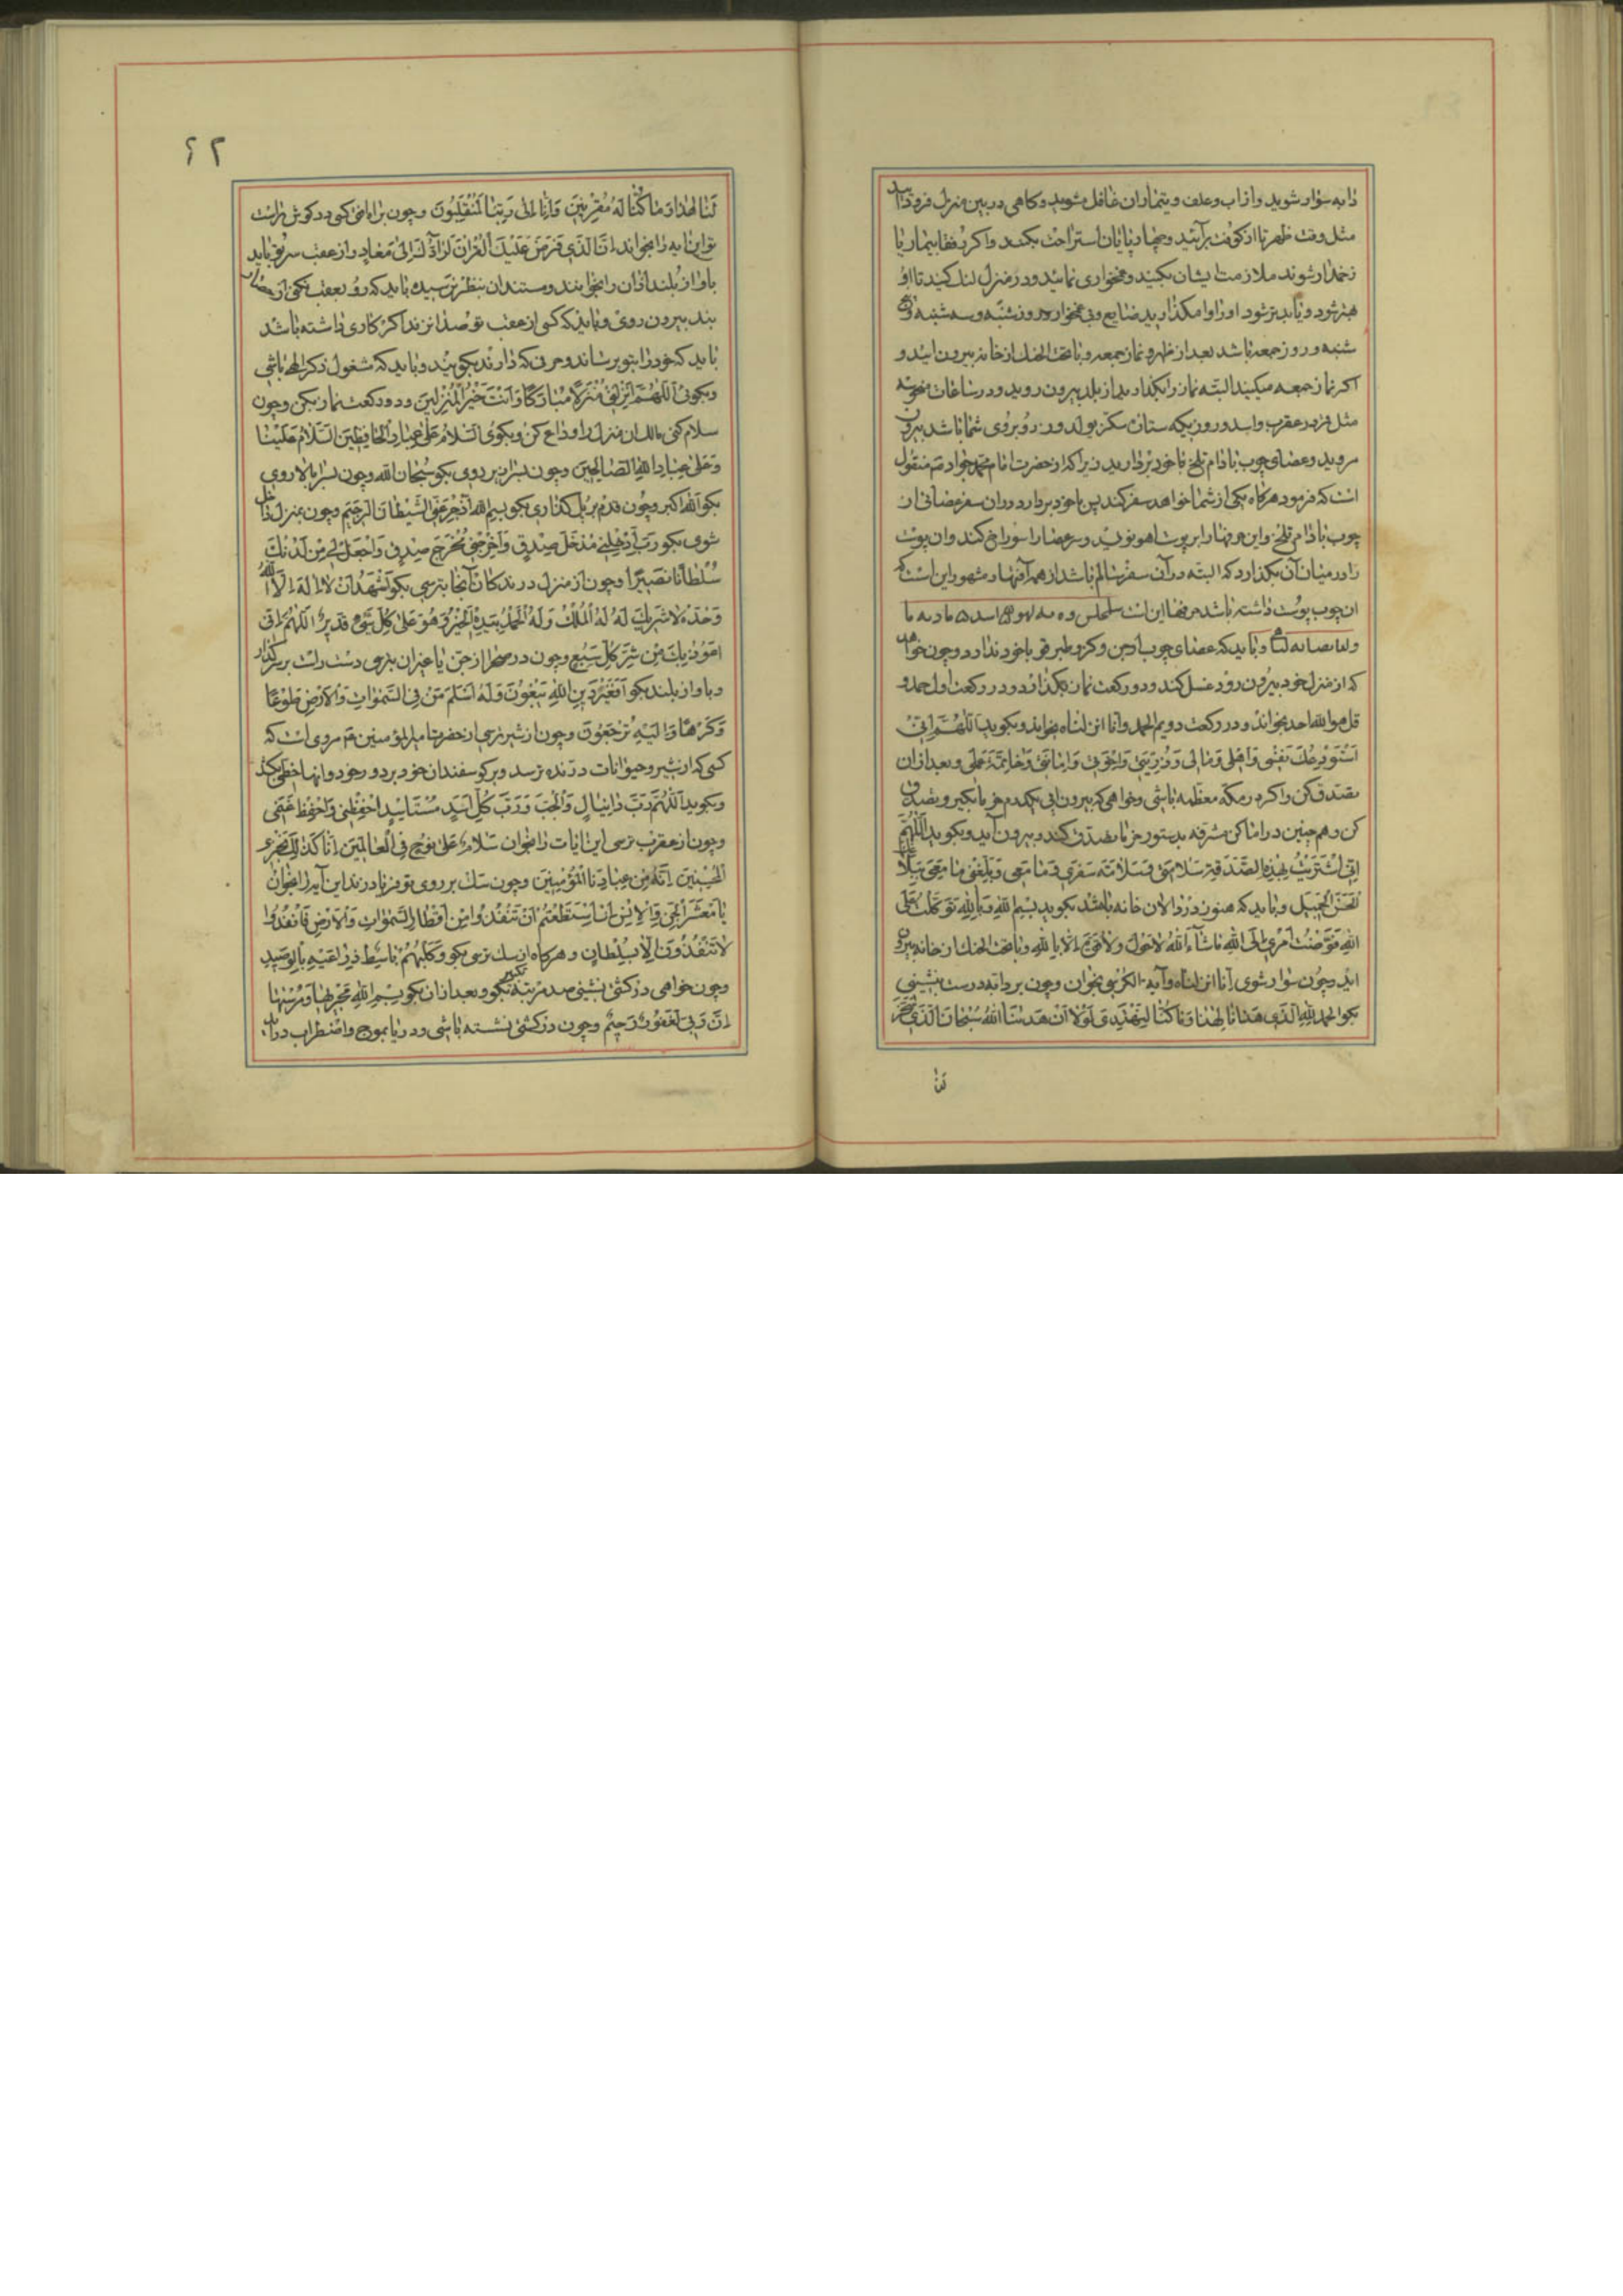 دابه سوار شوید و از آب و علف و تیمار آن غافل مشوید و کاهی در بین منزل فرود آیید
مثل وقت ظهر تا از کوفت برآیند و چهارپایان استراحت بکنند و اکر رفقا بیمار یا
زخمدار شوند ملازمت ایشان بکنید و غمخواری نمائید و در منزل لنك کنید تا او
بهتر شود و نباید شود او را وامکذارید ضایع و بی غمخوار و روز شنبه و سه شنبه و
شنبه و روز جمعه باشد بعد از ظهر و نماز جمعه و با تحت الحنك از خانه بیرون آیید و
اکر نماز جمعه میکنید البته نماز را بکذارید از بلد بیرون روید و در ساعات
مثل قمر در عقرب و روزیکه ستاره سکز یولدوز روبروی شما باشد بیرون
مروید و عصای چوب بادام تلخ با خود بردارید زیرا که از حضرت امام محمد جواد منقول
است که فرمود هرکاه یکی از شما خواهد سفر کند پس با خود بردارد در آن سفر عصائی از
چوب بادام تلخ و این حرفها را بر پوست آهو نویسد و سر عصا را سوراخ کند و آن پوست
را در میان آن بکذارد که البته در آن سفر سالم باشد از همه آفتها و مشهور این است که
آن چوب پوست داشته باشد حرفها این است
و باید که عصای چوب ارجن و کز و طبرقو با خود ندارد و چون خواهد
که از منزل خود بیرون رود غسل کند و دو رکعت نماز بکذارد و در رکعت اول حمد و
قل هو الله احد بخواند و در رکعت دویم الحمد و انا انزلناه بخواند و بکوید اَللّٰهُمَّ اِنّی
اَسْتَوْدِعُكَ نَفْسی وَ اَهْلی وَ مالی وَ ذُرِّیَّتی وَ اِخْوَتی وَ اَمانَتی وَ خاتِمَةَ عَمَلی و بعد از آن
تصدق کن و اکر در مکه معظمه باشی و خواهی که بیرون آیی یکدرم خرما بکیر و تصدق
کن و هم چنین در اماکن مشرفه بدستور خرما تصدق کند و بیرون آید و بکوید اَللّٰهُمَّ
اِنّی اشْتَرَیْتُ بِهٰذِهِ الصَّدَقَةِ سَلامَتی وَ سَلامَةَ سَفَری وَ ما مَعی وَ بَلِّغْنی ما مَعی بِبَلاغِكَ
الْحَسَنِ الْجَمیلِ و باید که هنوز در دالان خانه باشد بکوید بِسْمِ اللهِ وَ بِاللهِ تَوَکَّلْتُ عَلَی
اللهِ فَوَّضْتُ اَمْری اِلَی اللهِ ماشآءَ اللهُ لا حَوْلَ وَ لا قُوَّةَ اِلّا بِاللهِ و با تحت الحنك از خانه بیرون
آید و چون سوار شوی انا انزلناه و آیة الکرسی بخوان و چون بر دابه درست بنشینی
بکو الحمد للهِ الَّذی هَدانا لِهٰذا وَ ما کُنّا لِنَهْتَدِیَ لَوْلا اَنْ هَدانَا اللهُ سُبْحانَ الَّذی سَخَّرَ
لنا
۶۲
لَنا هٰذا وَ ما کُنّا لَهُ مُقْرِنینَ وَ اِنّا اِلی رَبِّنا لَمُنْقَلِبُونَ و چون براه افتی کسی در کوش راست
تو این آیه را بخواند اِنَّ الَّذی فَرَضَ عَلَیْكَ الْقُرْآنَ لَرادُّكَ اِلی مَعادٍ و از عقب سر تو باید
باواز بلند اذان را بخوانند
بیرون روی و باید که کسی از عقب تو صدا نزند اکر کاری داشته باشد
باید که خود را بتو برساند و حرفی که دارند بکویند و باید که مشغول ذکر الهی باشی
و بکوئی اَللّٰهُمَّ اَنْزِلْنی مُنْزَلًا مُبارَکًا وَ اَنْتَ خَیْرُ الْمُنْزِلینَ و دو رکعت نماز بکن و چون
سلام کنی منزل را وداع کن و بکوی اَلسَّلامُ عَلی عِبادِ الْحافِظینَ اَلسَّلامُ عَلَیْنا
وَ عَلی عِبادِ اللهِ الصّالِحینَ و چون بسرازیر روی بکو سُبْحانَ الله و چون بسربالا روی
بکو اَللهُ اَکْبَر و چون قدم بر پل کذاری بکو بِسْمِ اللهِ اَدْحَرُ عَنِّی الشَّیْطانَ الرَّجیمَ و چون بمنزل داخل
شوی بکو رَبِّ اَدْخِلْنی مُدْخَلَ صِدْقٍ وَ اَخْرِجْنی مُخْرَجَ صِدْقٍ وَ اجْعَلْ لی مِنْ لَدُنْكَ
سُلْطانًا نَصیرًا و چون از منزل درندکان آنجا بترسی بکو اَشْهَدُ اَنْ لا اِلٰهَ اِلَّا اللهُ
وَحْدَهُ لا شَریكَ لَهُ لَهُ الْمُلْكُ وَ لَهُ الْحَمْدُ بِیَدِهِ الْخَیْرُ وَ هُوَ عَلی کُلِّ شَیْءٍ قَدیرٌ اَللّٰهُمَّ اِنّی
اَعُوذُ بِكَ مِنْ شَرِّ کُلِّ سَبُعٍ و چون در صحرا از جن یا غیر آن بترسی دست راست بر سر کذار
و باواز بلند بکو اَفَغَیْرَ دینِ اللهِ یَبْغُونَ وَ لَهُ اَسْلَمَ مَنْ فِی السَّمٰواتِ وَ الْاَرْضِ طَوْعًا
وَ کَرْهًا وَ اِلَیْهِ تُرْجَعُونَ و چون از شیر ترسی از حضرت امیرالمؤمنین مروی است که
کسی که از شیر و حیوانات درنده ترسد و بر کوسفندان خود بر دور خود و آنها خطی بکشد
و بکوید اَللّٰهُمَّ رَبَّ دانیالٍ وَ الْجُبِّ وَ رَبَّ کُلِّ اَسَدٍ مُسْتَأْسِدٍ احْفَظْنی وَ احْفَظْ غَنَمی
و چون از عقرب ترسی این آیات را بخوان سَلامٌ عَلی نُوحٍ فِی الْعالَمینَ اِنّا کَذٰلِكَ نَجْزِی
الْمُحْسِنینَ اِنَّهُ مِنْ عِبادِنَا الْمُؤْمِنینَ و چون سك بر روی تو فریاد زند این آیه را بخوان
یا مَعْشَرَ الْجِنِّ وَ الْاِنْسِ اِنِ اسْتَطَعْتُمْ اَنْ تَنْفُذُوا مِنْ اَقْطارِ السَّمٰواتِ وَ الْاَرْضِ فَانْفُذُوا
لا تَنْفُذُونَ اِلّا بِسُلْطانٍ و هرکاه از سك ترسی بکو وَ کَلْبُهُمْ باسِطٌ ذِراعَیْهِ بِالْوَصیدِ
و چون خواهی در کشتی نشینی صد مرتبه تکبیر بکو و بعد از آن بکو بِسْمِ اللهِ مَجْریٰها وَ مُرْسٰیها
اِنَّ رَبّی لَغَفُورٌ رَحیمٌ و چون در کشتی نشسته باشی و دریا بموج و اضطراب درآید